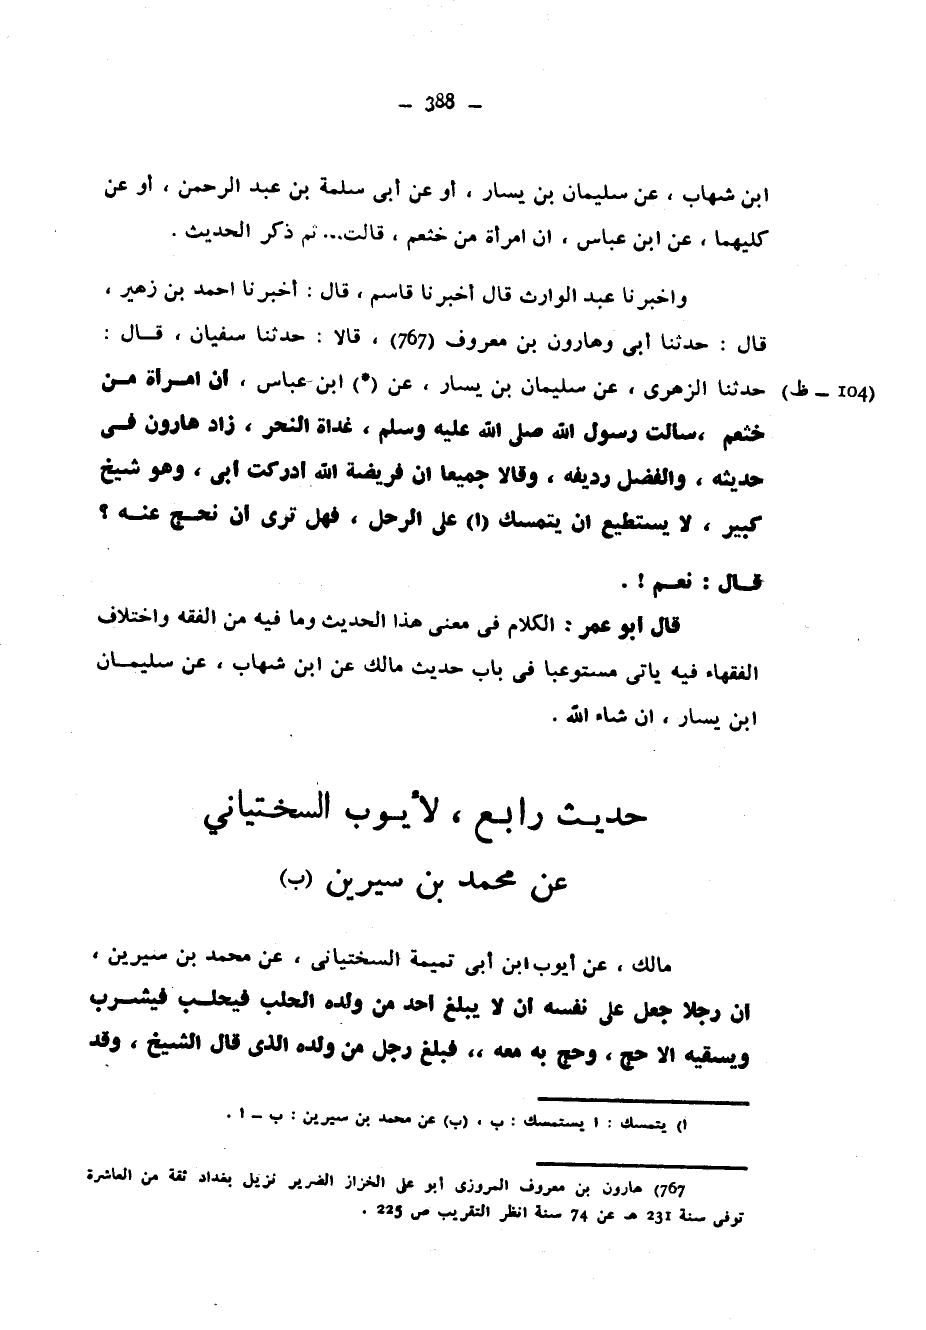 — 388 —
ابن شهاب ، عن سليمان بن يسار ، أو عن أبى سلمة بن عبد الرحمن ، أو عن
كليهما ، عن ابن عباس ، ان امرأة من خثعم ، قالت... ثم ذكر الحديث .
واخبرنا عبد الوارث قال أخبرنا قاسم ، قال : أخبرنا احمد بن زهير ،
قال : حدثنا أبى وهارون بن معروف (767) ، قالا : حدثنا سفيان ، قــال :
(104 — ظ) حدثنا الزهرى ، عن سليمان بن يسار ، عن (*) ابن عباس ، أن امـرأة مـن
خثعم ،سالت رسول الله صلى الله عليه وسلم ، غداة النحر ، زاد هارون فـى
حديثه ، والفضل رديفه ، وقالا جميعا ان فريضة الله ادركت ابى ، وهو شيخ
كبير ، لا يستطيع ان يتمسك (ا) على الرحل ، فهل ترى ان نحـج عنـه ؟
قــال : نعـم ! .
قال ابو عمر : الكلام فى معنى هذا الحديث وما فيه من الفقه واختلاف
الفقهاء فيه ياتى مستوعبا فى باب حديث مالك عن ابن شهاب ، عن سليمــان
ابن يسار ، ان شاء الله .
حديـث رابـع ، لأيـوب السختياني
عن محمد بن سيرين (ب)
مالك ، عن أيوب ابن أبى تميمة السختيانى ، عن محمد بن سيرين ،
ان رجلا جعل على نفسه ان لا يبلغ احد من ولده الحلب فيحلـب فيشـرب
ويسقيه الا حج ، وحج به معه ،، فبلغ رجل من ولده الذى قال الشيخ ، وقد
ا) يتمسك : ا يستمسك : ب ، (ب) عن محمد بن سيرين : ب — ا .
767) هارون بن معروف المروزى أبو على الخزاز الضرير نزيل بغداد ثقة من العاشرة
توفى سنة 231 هـ عن 74 سنة انظر التقريب ص 225 .